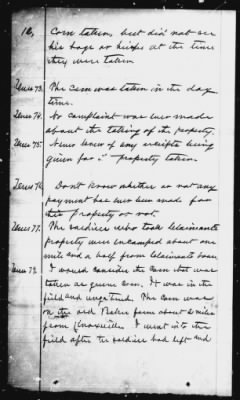 12,
corn taken, but did not see
his hogs or heifer at the time
they were taken
73. The corn was taken in the day
time.
74. No complaint was ever made
about the taking of the property.
75. Never knew of any receipts being
given for property taken.
76. Don't know whether or not any
payment has ever been made for
this property or not.
77. The soldiers who took Claimants
property were encamped about one
mile and a half from Claimants house
72. I would consider the corn that was
taken as green corn. It was in the
field and ungathered. The corn was
on the old Baker farm about 2 miles
from Knoxville. I went into the
field after the soldiers had left and